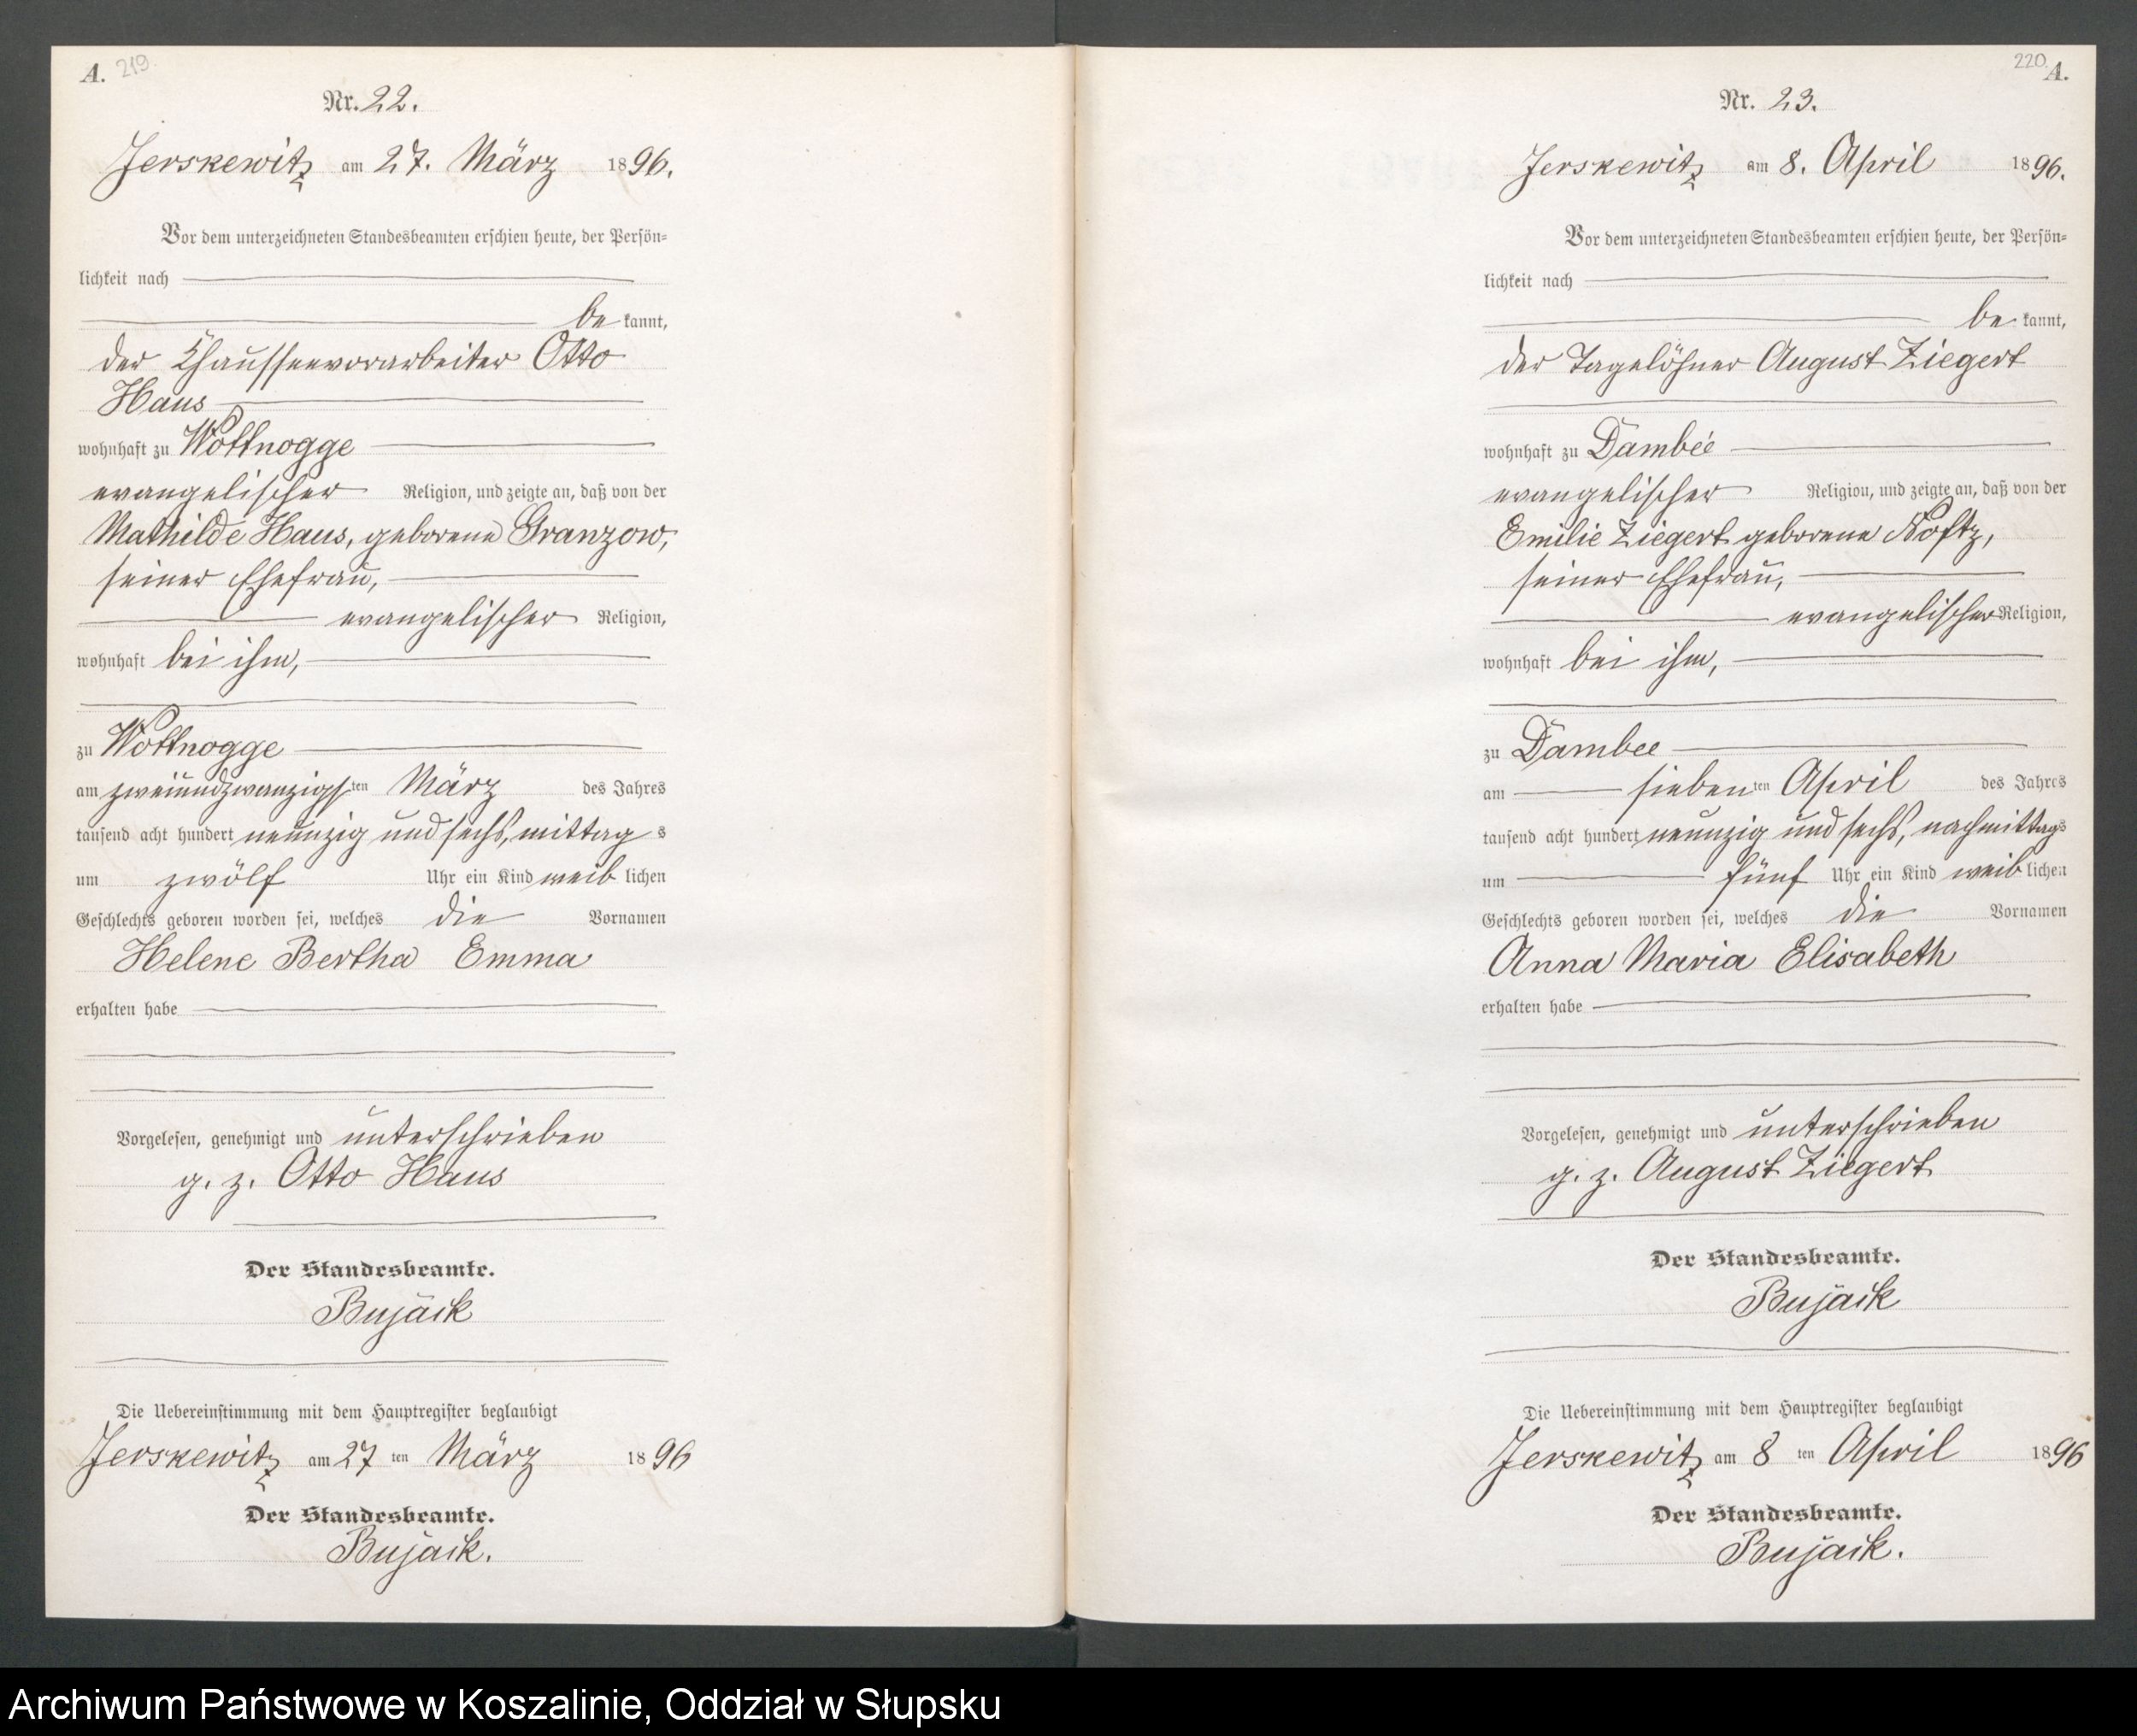 A. 219.
Nr. 22.
Jerskewitz am 27. März 1896.
Vor dem unterzeichneten Standesbeamten erschien heute, der Persön-
lichkeit nach
be kannt,
der Chausseevorarbeiter Otto
Haus
wohnhaft zu Wottnogge
evangelischer Religion, und zeigte an, daß von der
Mathilde Haus, geborene Granzow,
seiner Ehefrau,
evangelischer Religion,
wohnhaft bei ihm,
zu Wottnogge
am zweiundzwanzigsten März des Jahres
tausend acht hundert neunzig und sechs, mittags
um zwölf Uhr ein Kind weiblichen
Geschlechts geboren worden sei, welches die Vornamen
Helene Bertha Emma
erhalten habe
Vorgelesen, genehmigt und unterschrieben
g. z. Otto Haus
Der Standesbeamte.
Bujack
Die Uebereinstimmung mit dem Hauptregister beglaubigt
Jerskewitz am 27 ten März 1896
Der Standesbeamte.
Bujack.
220. A.
Nr. 23.
Jerskewitz am 8. April 1896.
Vor dem unterzeichneten Standesbeamten erschien heute, der Persön-
lichkeit nach
be kannt,
der Tagelöhner August Ziegert
wohnhaft zu Dambee
evangelischer Religion, und zeigte an, daß von der
Emilie Ziegert geborene Noftz,
seiner Ehefrau,
evangelischer Religion,
wohnhaft bei ihm,
zu Dambee
am siebenten April des Jahres
tausend acht hundert neunzig und sechs, nachmittags
um fünf Uhr ein Kind weiblichen
Geschlechts geboren worden sei, welches die Vornamen
Anna Maria Elisabeth
erhalten habe
Vorgelesen, genehmigt und unterschrieben
g. z. August Ziegert
Der Standesbeamte.
Bujack
Die Uebereinstimmung mit dem Hauptregister beglaubigt
Jerskewitz am 8 ten April 1896
Der Standesbeamte.
Bujack.
Archiwum Państwowe w Koszalinie, Oddział w Słupsku